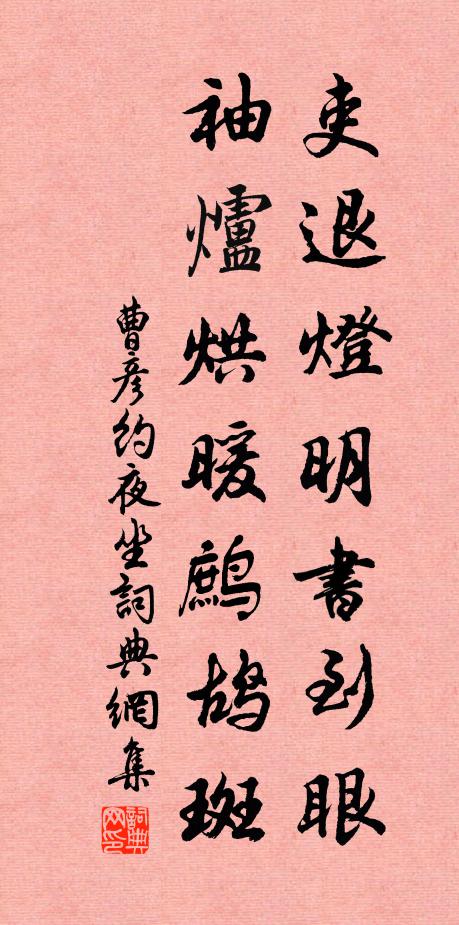 吏退燈明書到眼
袖爐烘暖鷓鴣斑
曹彥約夜坐詞典網集
詞典網印